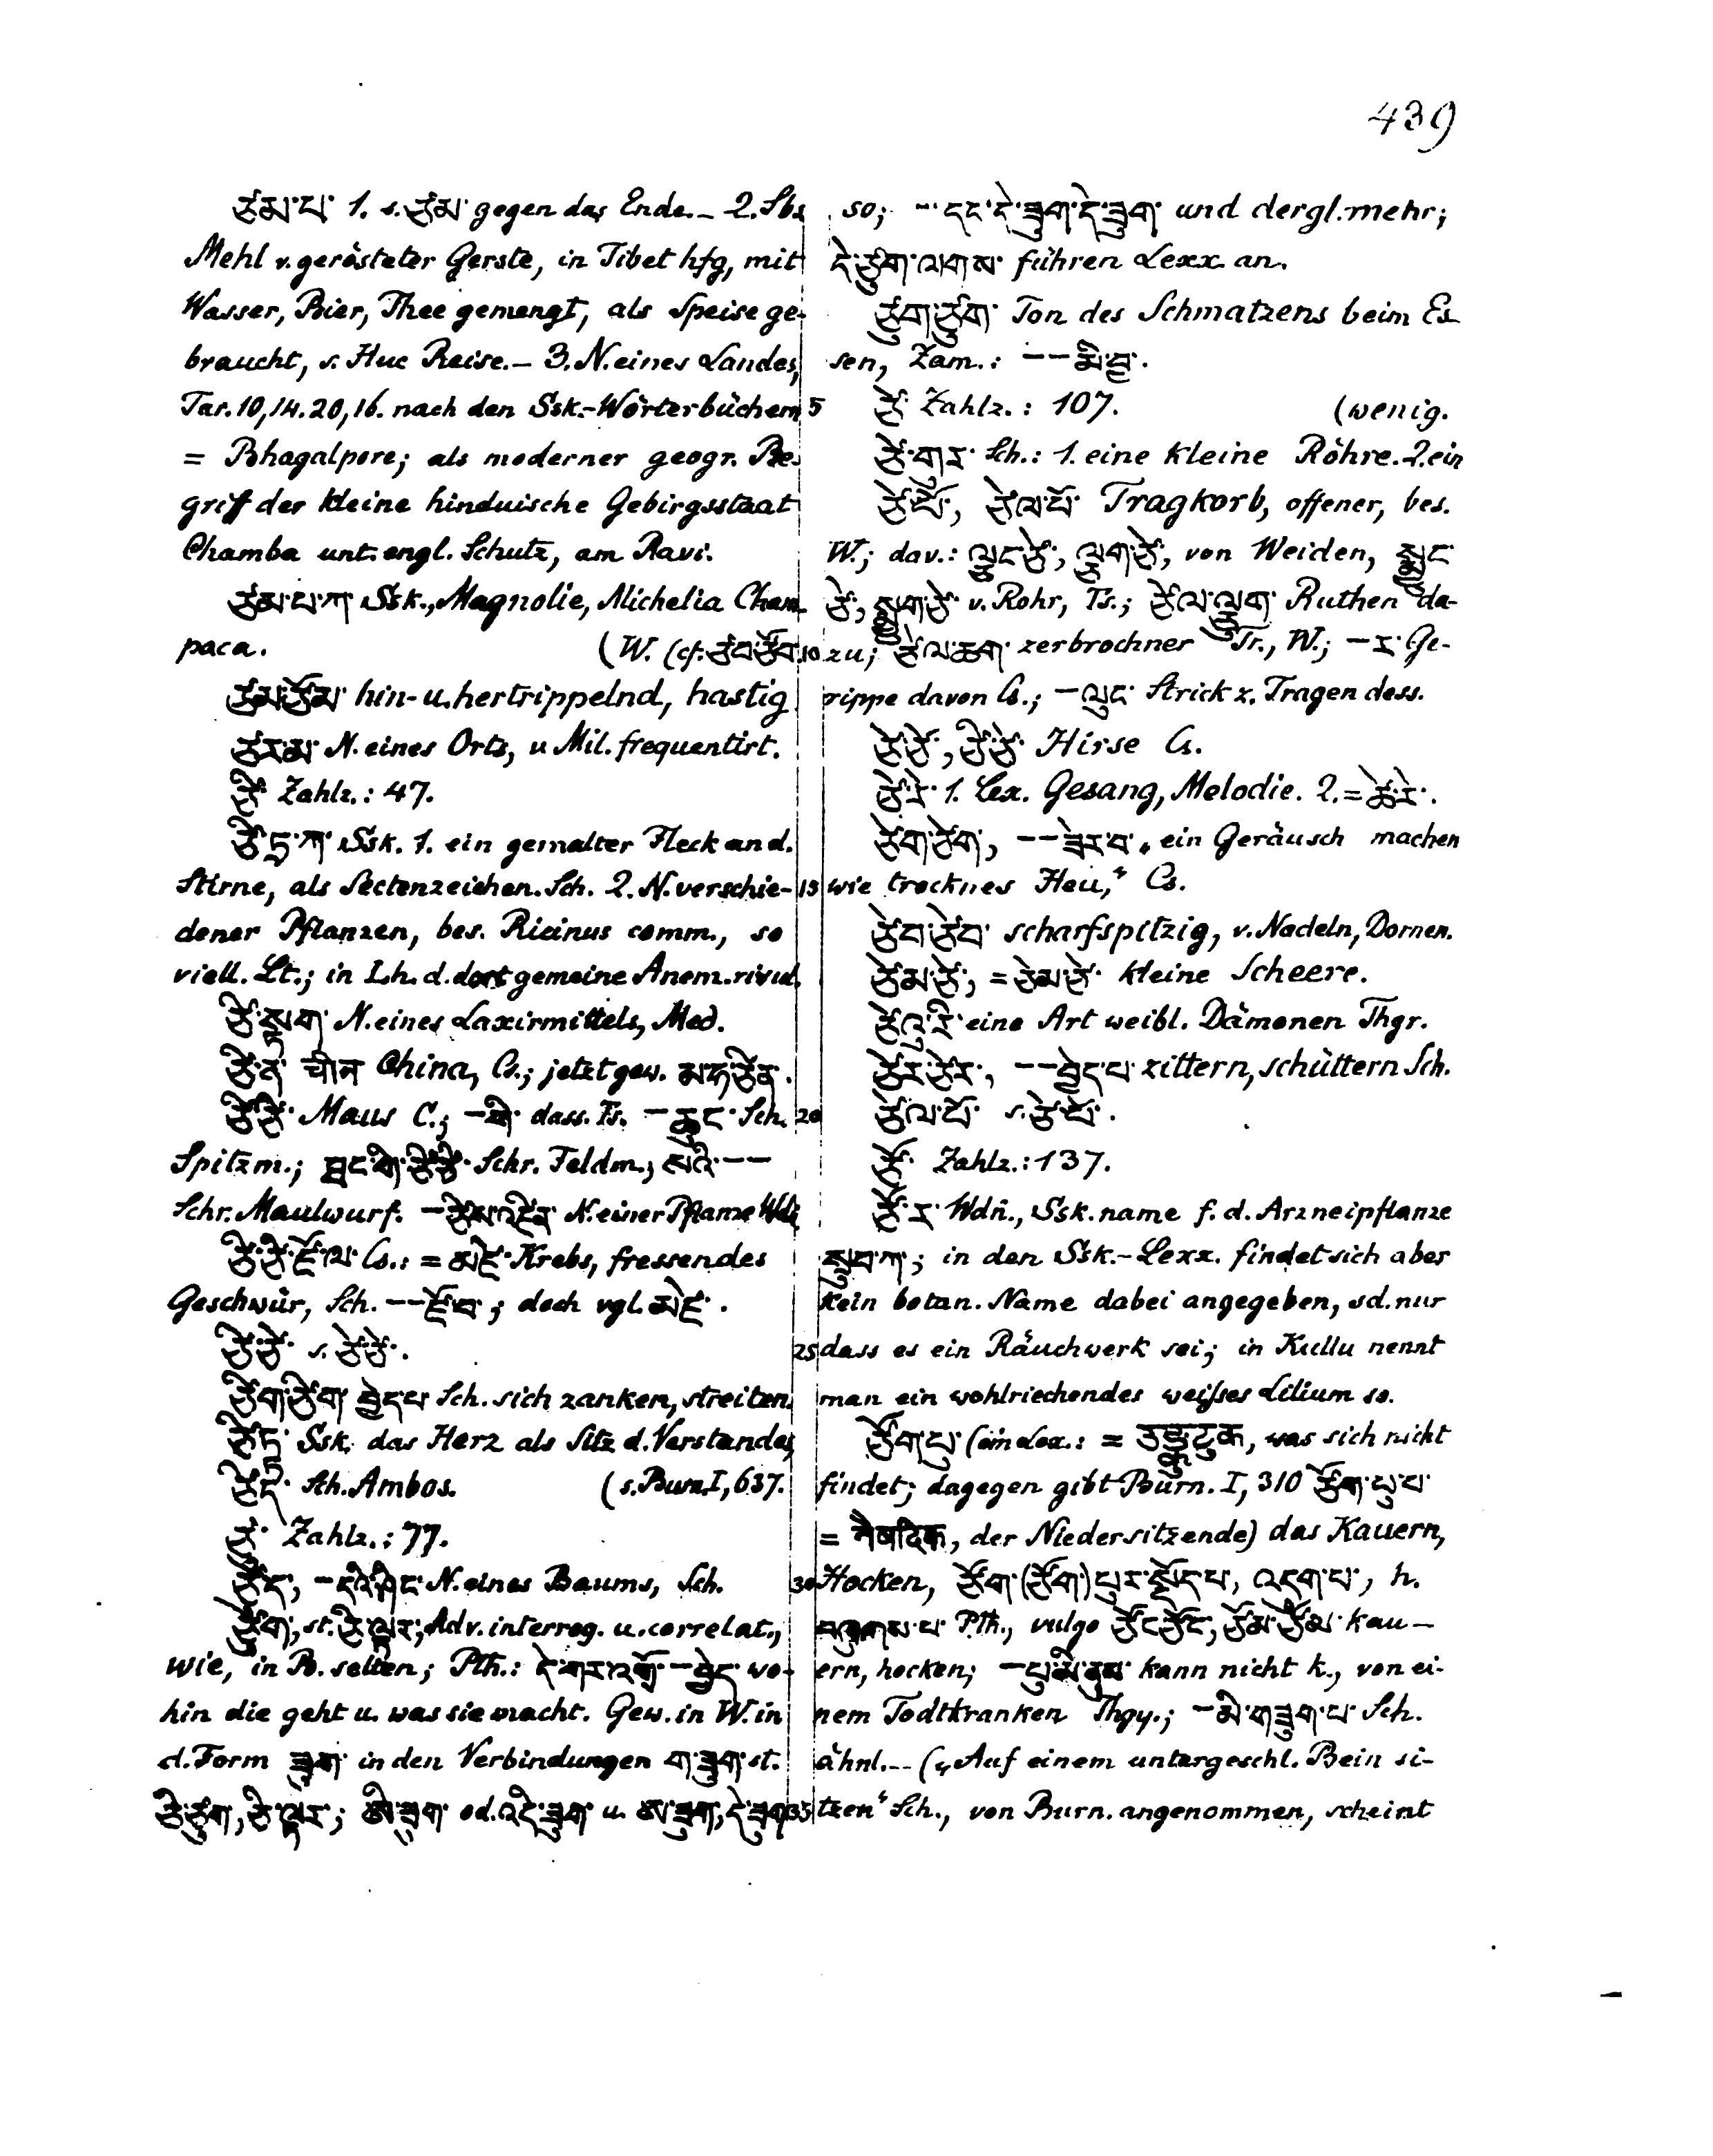 439
ཙམ་པ་ 1. s. ཙམ་ gegen das Ende. – 2. Sbs
Mehl v. gerösteter Gerste, in Tibet hfg, mit
Wasser, Bier, Thee gemengt, als Speise ge-
braucht, s. Huc Reise. – 3. N. eines Landes,
Tar. 10,14. 20,16. nach den Ssk.-Wörterbüchern
= Bhagalpore; als moderner geogr. Be-
griff der kleine hinduische Gebirgsstaat
Chamba unt. engl. Schutz, am Ravi.
ཙམ་པ་ཀ་ Ssk., Magnolie, Michelia Cham-
paca. (W. (cf. ཙབ་ཙོབ་
ཙམ་ཙོམ་ hin- u. hertrippelnd, hastig
ཙརམ་ N. eines Orts, v Mil. frequentirt.
ཙི་ Zahlz.: 47.
ཙི་ཏྲ་ཀ་ Ssk. 1. ein gemalter Fleck an d.
Stirne, als Sectenzeichen. Sch. 2. N. verschie-
dener Pflanzen, bes. Ricinus comm., so
viell. Lt.; in Lh. d. dort gemeine Anem. rivul.
N. eines Laxirmittels, Med.
ཙི་ན་ चीन China, Cs.; jetzt gew. མཧཱ་ཙིན་.
ཙི་ཙི་ Maus C.; dass. Ts. – ཆུང་ Sch.
Spitzm.; བྲང་གི་ཙི་ཙི་ Schr. Feldm.; སའི་ – –
Schr. Maulwurf. – N. einer Pflanze Wdṅ
ཙི་ཙི་ཛོ་ལ་ Cs.: = མཛེ་ Krebs, fressendes
Geschwür, Sch. – – ཛོ་བ་; doch vgl. མེ་ཛེ་.
ཙི་ཙི་ s. ཙེ་ཙེ་.
ཙིག་ཙིག་ བྱེད་པ་ Sch. sich zanken, streiten.
ཙིཏྟ་ Ssk. das Herz als Sitz d. Verstandes,
Sch. Ambos. (s. Burn. I, 637.
ཙུ་ Zahlz.: 77.
N. eines Baums, Sch.
ཙུག་, st. ཙི་ལྟར་, Adv. interrog. u. correlat.,
wie, in B. selten; Pth.: དེ་གར་འགྲོ་ – བྱེད་ wo-
hin die geht u. was sie macht. Gew. in W. in
d. Form ཟུག་ in den Verbindungen ག་ཟུག་ st.
ཙི་ཙུག་, ཙི་ལྟར་; ཨི་ཟུག་ od. འདི་ཟུག་ u. ཨ་ཟུག་, དེ་ཟུག་
so; – དང་དེ་ཟུག་དེ་ཟུག་ und dergl. mehr;
དེ་ཙུག་ལགས་ führen Lexx. an.
ཙུག་ཙུག་ Ton des Schmatzens beim Es-
sen, Zam.: – – མི་བྱ་.
5 ཙེ་ Zahlz.: 107. (wenig.
ཙེ་གར་ Sch.: 1. eine kleine Röhre. 2. ein
ཙེ་པོ་, ཙེལ་པོ་ Tragkorb, offener, bes.
W.; dav.: ལྕང་ཙེ་, ལྕུག་ཙེ་, von Weiden, སྨྱུང་
ཙེ་, སྨྱུག་ཙེ་ v. Rohr, Ts.; ཙེལ་ལྕུག་ Ruthen da-
10 zu; ཙེལ་ཆག་ zerbrochner Tr., W.; – ར་ Ge-
rippe davon Cs.; – ལུང་ Strick z. Tragen dess.
ཙེ་ཙེ་, ཙི་ཙེ་ Hirse Cs.
ཙེ་རེ་ 1. Lex. Gesang, Melodie. 2. = ཆེ་རེ་.
ཙེག་ཙེག་, – – ཟེར་བ་ „ein Geräusch machen
15 wie trocknes Heu,“ Cs.
ཙེབ་ཙེབ་ scharfspitzig, v. Nadeln, Dornen.
ཙེམ་ཙེ་, = ཇེམ་ཙེ་ kleine Scheere.
ཙེའུ་རི་ eine Art weibl. Dämonen Thgr.
ཙེར་ཙེར་, – – བྱེད་པ་ zittern, schüttern Sch.
20 ཙེལ་པོ་ s. ཙེ་པོ་.
ཙོ་ Zahlz.: 137.
ཙོ་ར་ Wdṅ., Ssk. name f. d. Arzneipflanze
in den Ssk.-Lexx. findet sich aber
kein botan. Name dabei angegeben, sd. nur
25 dass es ein Räuchwerk sei; in Kullu nennt
man ein wohlriechendes weißes Lilium so.
ཙོག་པུ་ (ein Lex.: = was sich nicht
findet; dagegen gibt Burn. I, 310 ཙོག་པུ་པ་
= नैषदिक, der Niedersitzende) das Kauern,
30 Hocken, ཙོག་(ཙོག་)པུར་སྡོད་པ་, འདུག་པ་, h.
བཞུགས་པ་ Pth., vulgo ཙོང་ཙོང་, ཙོམ་ཙོམ་ kau-
ern, hocken; – པུ་མི་ནུས་ kann nicht k., von ei-
nem Todtkranken Thgy.; – མི་གཟུག་པ་ Sch.
ähnl. – – („Auf einem untergeschl. Bein si-
35 tzen“ Sch., von Burn. angenommen, scheint